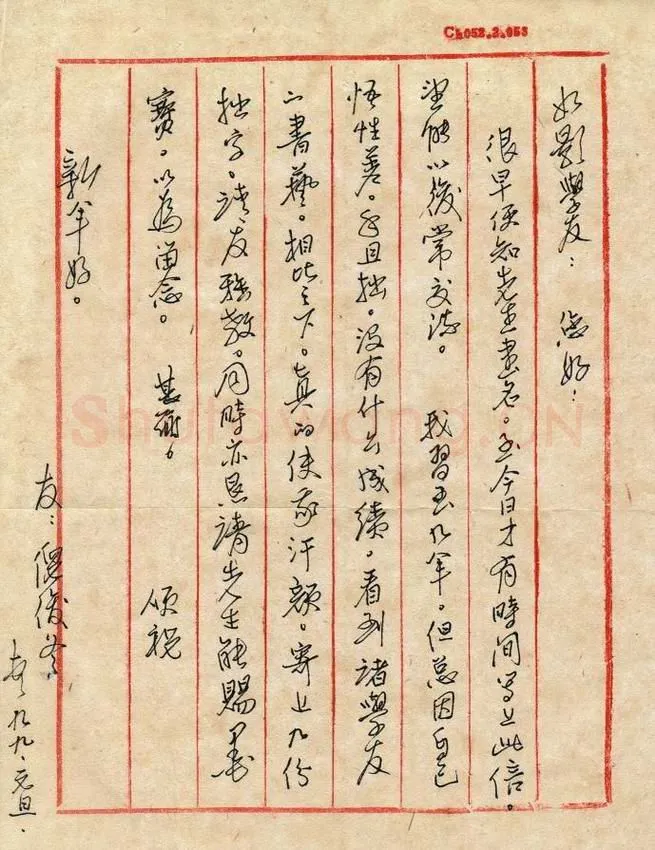 Ch052.2.053
如影學友： 您好：
很早便知先生畫名。至今日才有時间写上此信。
望能以後常交流。 我習玉九年。但总因自己
悟性差。手且拙。没有什么成绩。看到諸學友
的書藝。相比之下。真的使我汗颜。寄上几份
拙字。請友雅教。同時亦恳請先生能賜墨
寶。以為留念。 甚謝。 頌祝
新年好。
友： 倪俊冬
九九、元旦、
Shufawang.CN